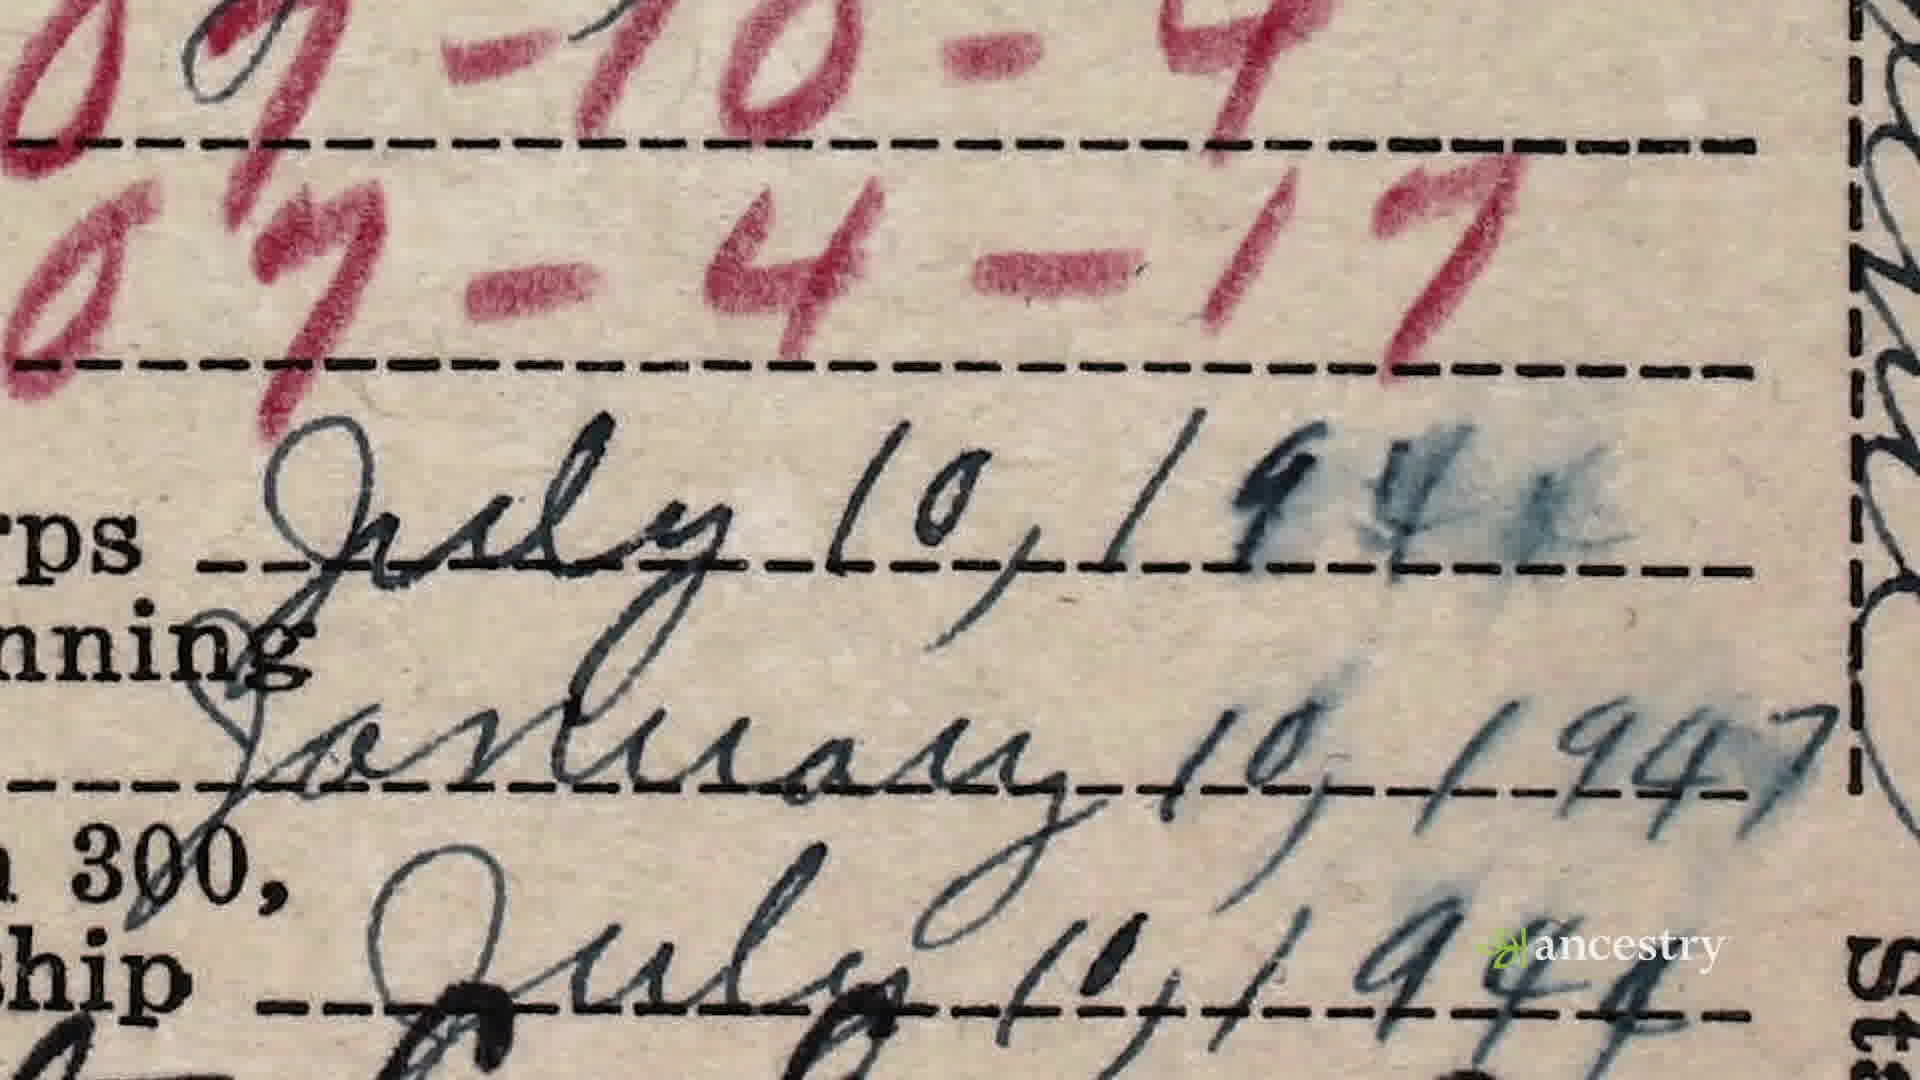 07-10-4
07-4-17
rps July 10, 1944
nning
January 10, 1947
n 300,
ship July 10, 1944
ancestry
Sta